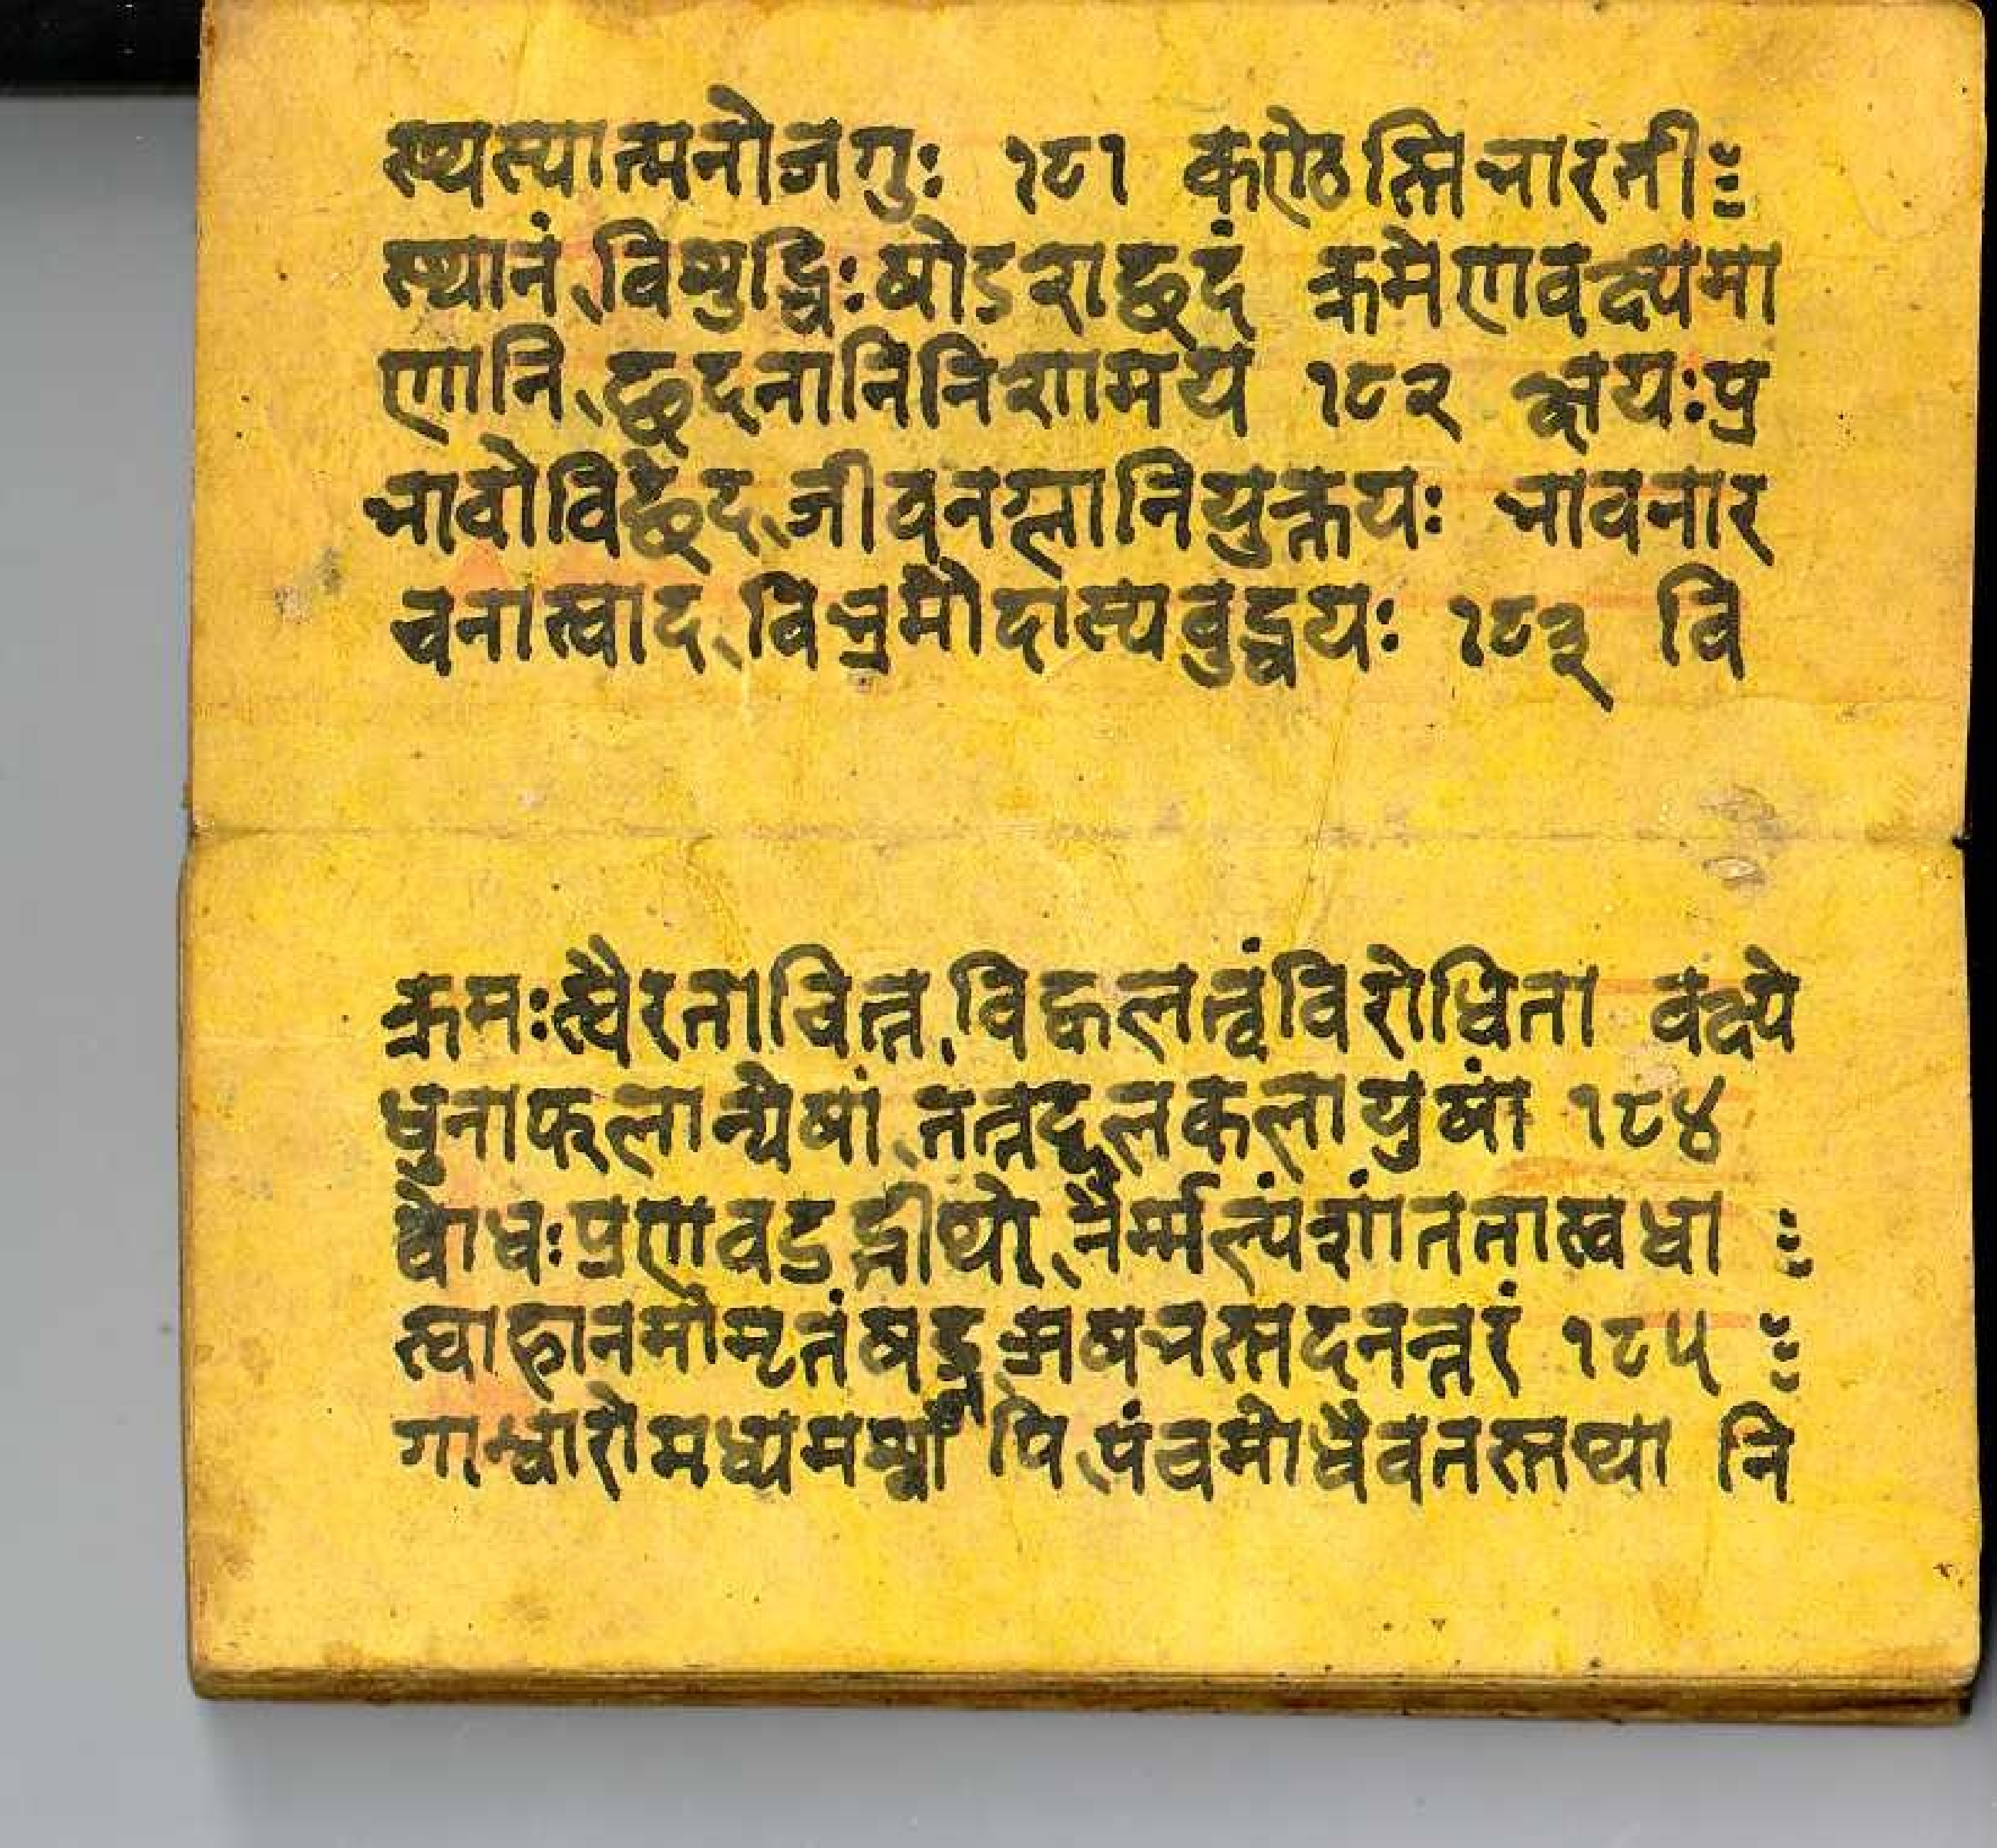 स्थस्यात्मनो जगुः १८१ कण्ठेस्ति भारती
स्थानं विशुद्धिः षोडशछदं क्रमेण वक्ष्यमा
णानि छदनानि निशामय १८२ क्षयः प्र
भावो विछेद जीवनग्लानियुक्तयः भावनार
चनास्वाद विभ्रमौदास्यबुद्धयः १८३ वि
क्रमः स्थैरता चित्त विक्कलत्वं विरोधिता वक्ष्ये
धुना फलान्येषां तत्तद्दलकलायुषां १८४
बोधः प्रणवउद्गीथो नैर्मल्यं शांतता स्वधा
स्वाहा नमोमृतं षड्ज ऋषभस्तदनन्तरं १८५
गान्धारो मध्यमश्चापि पंचमो धैवतस्तथा नि